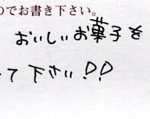 のでお書き下さい。
おいしいお菓子を
て下さい!!